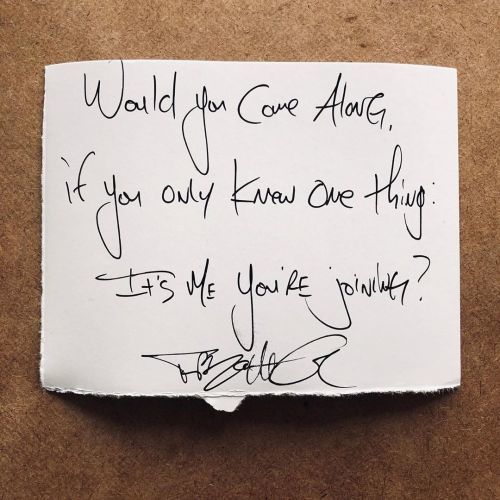 Would you Come Along,
if you only knew one thing:
It's me you're joining?